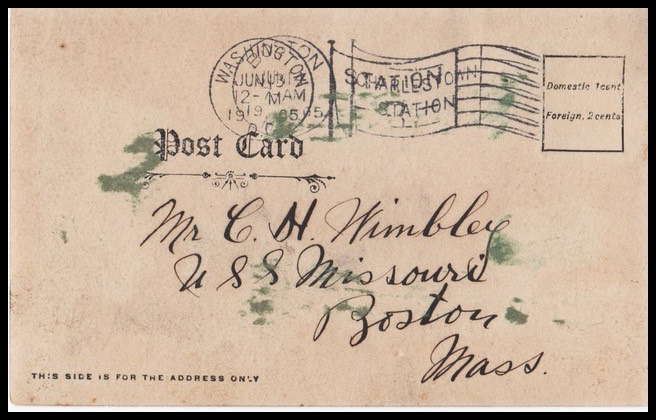 WASHINGTON
BOSTON
D.C.
STATION
CHARLESTOWN
STATION
Domestic 1 cent
Foreign, 2 cents
Post Card
Mr C. H. Wimbley
U S S Missouri
Boston
Mass.
THIS SIDE IS FOR THE ADDRESS ONLY